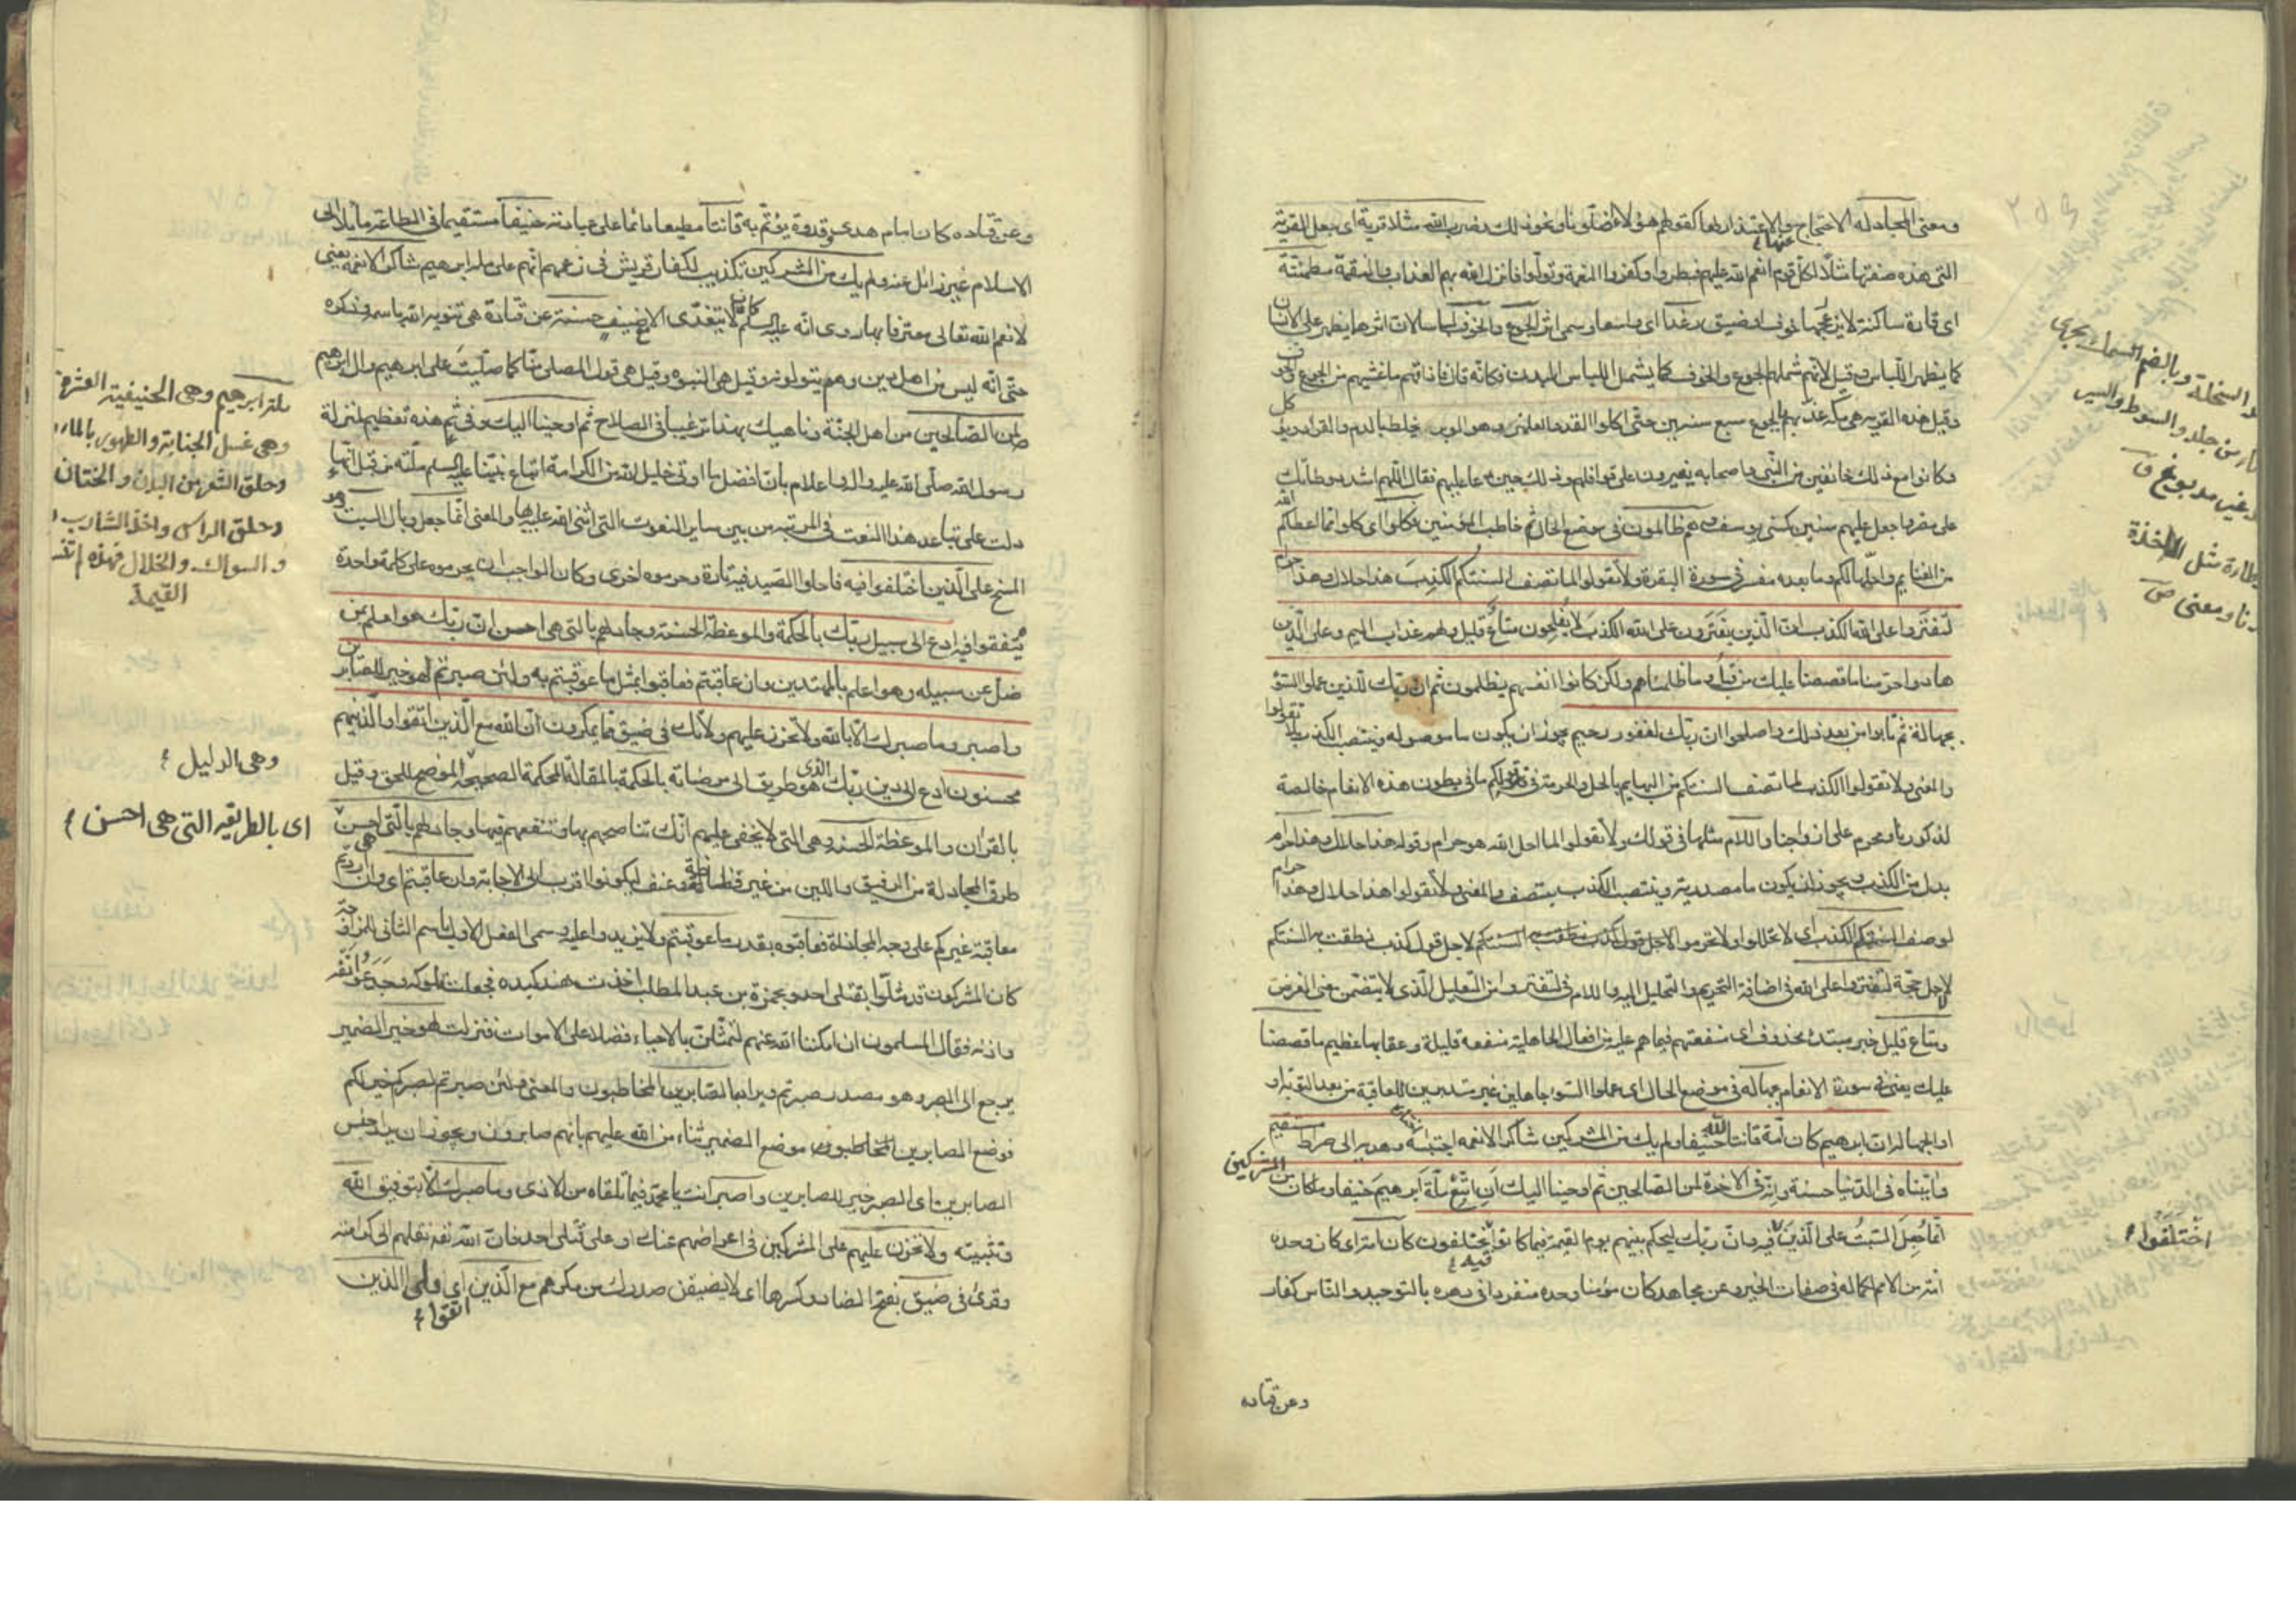 ومعنى المجادله الاحتجاج والاعتذار بها كقولهم هؤلاء اضلّونا ونحو ذلك ضرب الله مثلا قرية اى جعل القرية
التى هذه صفتها مثلا لكل قوم انعم الله عليهم فبطروا وكفروا النعمة وتولّوا فانزل الله بهم العذاب والنقمة مطمئنّة
اى قارة ساكنة لا يزعجها خوف او ضيق رغدا اى واسعا وسمى اثر الجوع والخوف لباسا لان اثرهما يظهر على الانسان
كما يظهر اللّباس وقيل لانّهم شملهم الجوع والخوف كما يشمل اللباس البدن فكانّه قال فاذاقهم ما غشيهم من الجوع والخوف
وقيل هذه القريه هى مكّه عذّبهم بالجوع سبع سنين حتّى اكلوا القد والعلهز وهو الوبر يخلط بالدم والقراد ويؤكل
وكانوا مع ذلك خائفين من النّبى واصحابه يغيرون على قوافلهم وذلك حين دعا عليهم فقال اللّهم اشدد وطأتك
على مضر واجعل عليهم سنين كسنى يوسف وهم ظالمون فى موضع الحال ثم خاطب المؤمنين فكلوا اى كلوا ممّا اعطاكم الله
من الغنايم واحلّها لكم وما بعده مفسر فى سورة البقرة ولا تقولوا لما تصف السنتكم الكذب هذا حلال وهذا حرام
لتفتروا على الله الكذب ان الّذين يفترون على الله الكذب لا يفلحون متاع قليل ولهم عذاب اليم وعلى الّذين
هادوا حرّمنا ما قصصنا عليك من قبل وما ظلمناهم ولكن كانوا انفسهم يظلمون ثم ان ربّك للذين عملوا السّوء
بجهالة ثم تابوا من بعد ذلك واصلحوا ان ربّك لغفور رحيم يجوز ان يكون ما موصوله وينتصب الكذب بلا تقولوا
والمعنى ولا تقولوا الكذب لما تصف السنتكم من البهايم بالحل والحرمة فى قولكم ما فى بطون هذه الانعام خالصة
لذكورنا ومحرم على ازواجنا واللام مثلها فى قولك ولا تقولوا لما احل الله هو حرام وقوله هذا حلال وهذا حرام
بدل من الكذب ويجوز ان يكون ما مصدرية وينتصب الكذب بتصف والمعنى ولا تقولوا هذا حلال وهذا حرام
لوصف السنتكم الكذب اى لا تحللوا ولا تحرموا لاجل قول كذب نطقت به السنتكم لاجل قول كذب نطقت به السنتكم
لا لاجل حجّة لتفتروا على الله فى اضافة التحريم والتحليل اليه واللام فى لتفتروا من التّعليل الّذى لا يتضمّن معنى الغرض
ومتاع قليل خبر مبتدء محذوف اى منفعتهم فيما هم عليه من افعال الجاهلية منفعة قليلة وعقابها عظيم ما قصصنا
عليك يعنى فى سورة الانعام بجهاله فى موضع الحال اى عملوا السّوء جاهلين غير متدبرين للعاقبة من بعدها من بعد التوبة او
او الجهاله ان ابرهيم كان امّة قانتا لله حنيفا ولم يك من المشركين شاكرا لانعمه اجتبيه وهديه الى صراط مستقيم
واتيناه فى الدّنيا حسنة وانّه فى الاخرة لمن الصّالحين ثم اوحينا اليك ان اتّبع ملّة ابرهيم حنيفا وما كان من المشركين
انّما جعل السّبت على الّذين اختلفوا فيه وان ربّك ليحكم بينهم يوم القيمة فيما كانوا فيه يختلفون كان امّة اى كان وحده
امّة من الامم لكماله فى صفات الخير وعن مجاهد كان مؤمنا وحده منفردا فى دهره بالتّوحيد والنّاس كفار
وعن قتاده
اختلفوا
وعن قتاده كان امام هدى وقدوة يؤتمّ به قانتا مطيعا دائما على عبادته حنيفا مستقيما فى الطاعة مائلا الى
الاسلام غير زائل عنه ولم يك من المشركين تكذيب لكفار قريش فى زعمهم انّهم على ملّة ابرهيم شاكرا لانعمه يعنى
لانعم الله تعالى معترفا بها روى انّه عليه السلم كان لا يتغدّى الا مع ضيف حسنة عن قتادة هى تنويه الله باسمه وذكره
حتّى انّه ليس من اهل دين وهم يتولونه وقيل هى النبوه وقيل هى قول المصلى منّا كما صلّيت على ابرهيم وال ابرهيم
لمن الصّالحين من اهل الجنّة وناهيك بهذا ترغيبا فى الصلاح ثم اوحينا اليك وفى ثم هذه تعظيم لمنزلة
رسول الله صلّى الله عليه واله واعلام بانّ افضل ما اوتى خليل الله من الكرامة اتباع نبيّنا عليه السلم ملّته من قبل انّها
دلت على تباعد هذا النعت فى المرتبة من بين ساير النعوت التى اثنى الله عليه بها والمعنى انّما جعل وبال السبت وهو
المسخ على الّذين اختلفوا فيه فاحلوا الصّيد فيه تارة وحرموه اخرى وكان الواجب ان يحرموه على كلمة واحدة
يتّفقوا فيه ادع الى سبيل ربّك بالحكمة والموعظة الحسنة وجادلهم بالتى هى احسن ان ربّك هو اعلم بمن
ضل عن سبيله وهو اعلم بالمهتدين وان عاقبتم فعاقبوا بمثل ما عوقبتم به ولئن صبرتم لهو خير للصّابرين
واصبر وما صبرك الّا بالله ولا تحزن عليهم ولا تك فى ضيق ممّا يمكرون انّ الله مع الّذين اتّقوا والّذينهم
محسنون ادع الى دين ربّك الذى هو طريق الى مرضاته بالحكمة بالمقالة المحكمة الصحيحة الموضح للحق وقيل
بالقران والموعظة الحسنة وهى التى لا يخفى عليهم انّك تناصحهم بها وتنفعهم فيها وجادلهم بالّتى هى احسن
طرق المجادلة من الرفق واللين من غير فظاظة وعنف ليكونوا اقرب الى الاجابة وان عاقبتم اى وان اردتم
معاقبة غيركم على وجه المجازاة فعاقبوه بقدر ما عوقبتم ولا يزيدوا عليه وسمى الفعل الاول باسم الثانى للمزاوجة
كان المشركون قد مثّلوا بقتلى احد وبحمزة بن عبد المطلب اخذت هند كبده فجعلت تلوكه وجدعوا انفه
واذنه فقال المسلمون ان امكننا الله عنهم لنمثّلنّ بالاحياء فضلا على الاموات فنزلت لهو خير الضمير
يرجع الى الصبر وهو مصدر صبرتم ويراد بالصّابرين المخاطبون والمعنى ولئن صبرتم لصبركم خير لكم
فوضع الصابرين المخاطبون موضع الضمير ثناء من الله عليهم بانهم صابرون ويجوز ان يراد جنس
الصّابرين اى الصبر خير للصابرين واصبر انت يا محمّد فيما تلقاه من الاذى وما صبرك الّا بتوفيق الله
وتثبيته ولا تحزن عليهم على المشركين فى اعراضهم عنك او على قتلى احد فان الله نقلهم الى كرامته
وقرئ فى ضيق بفتح الضاد وكسرها اى لا يضيقن صدرك من مكرهم مع الّذين اى ولى الذين
اتقوا
ملة ابرهيم وهى الحنيفية العشرة
وهى غسل الجنابة والطهور بالماء
وحلق الشعر من البدن والختان
وحلق الراس واخذ الشارب
والسواك والخلال فهذه
القيمة
وهى الدليل
اى بالطريقه التى هى احسن